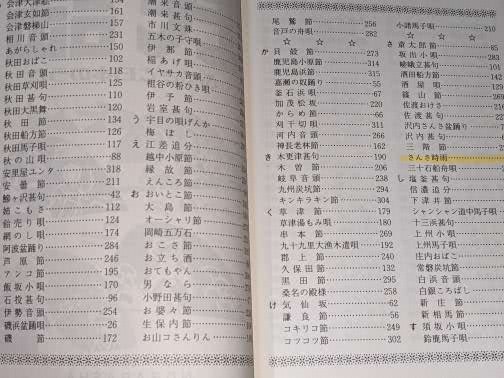 会津玄如節 161
会津磐梯山
相川音頭 231
あがらしゃれ 150
秋田おばこ 102
秋田音頭 118
秋田草刈唄 125
秋田甚句 110
秋田大黒舞 120
秋田節 134
秋田船方節 126
秋田馬子唄 117
秋の山唄 88
安里屋ユンタ 318
安曇節 211
鰺ヶ沢甚句 42
姉こもさ 112
飴売り唄 124
網のし唄 193
阿波盆踊り 284
芦原節 246
アンコ節 195
飯坂小唄 170
石投甚句 96
伊勢音頭 254
磯浜盆唄 26
磯節 172
潮来音頭
潮来甚句
市川文殊
五木の子守唄
伊那節
稲あげ唄
イヤサカ音頭
祖谷の粉ひき唄
伊予節
岩室甚句
う 宇目の唄げんか
梅ぼし
え 江差追分
越中小原節
縁故節
えんころ節
お おいとこ節
大島節
オーシャリ節
岡崎五万石
おこさ節
お立ち酒
おてもやん
男なら
小野田甚句
お婆々節
生保内節
お山コさんりん
尾鷲節 256
音戸の舟唄 282
☆ ☆ ☆
か 貝殻節 273
鹿児島小原節 314
鹿児島浜節 315
嘉瀬の奴踊り 55
釜石浜唄 67
加茂松坂 220
からめ節 66
刈干切唄 311
河内音頭 266
神長老林節 162
き 木更津甚句 190
木曽節 206
岐阜音頭 238
九州炭坑節 294
キンキラキン節 304
く 草津節 179
草津湯もみ唄 180
串本節 269
九十九里大漁木遣 192
郡上節 240
久保田節 132
黒田節 295
桑名の殿様 258
け 気仙坂 62
謙良節 56
コキリコ節 249
コツコツ節 302
小諸馬子唄 210
☆ ☆ ☆
さ 斎太郎節
坂出小唄
嵯峨立甚句 101
酒田船方節 142
酒屋唄 129
篠山節 269
佐渡おけさ
佐渡甚句
沢内さんさ盆踊り
沢内甚句
三階節
さんさ時雨
三十石船舟唄
し 塩釜甚句
信濃追分
下津井節
シャンシャン道中馬子唄
十三浜甚句
上州小唄
上州馬子唄
庄内おばこ
常磐炭坑節
白浜音頭
白銀ころばし
新庄節
新相馬節
す 須坂小唄
鈴鹿馬子唄